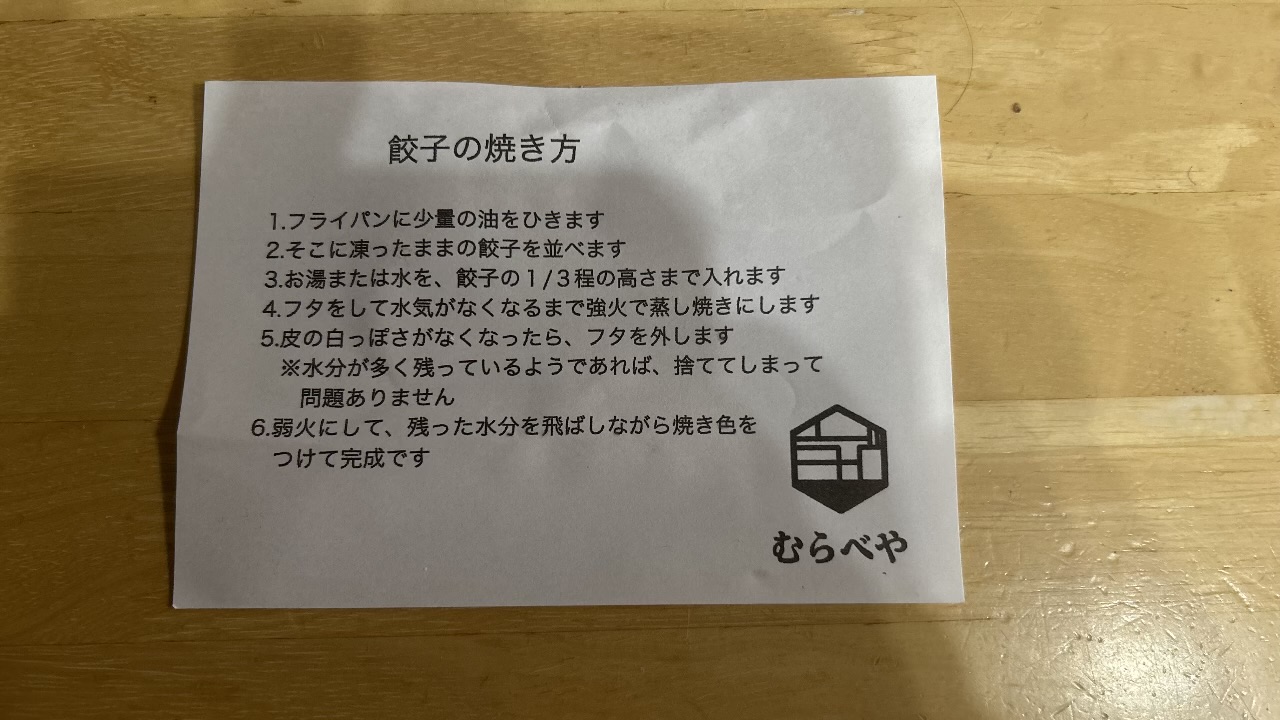 餃子の焼き方
1.フライパンに少量の油をひきます
2.そこに凍ったままの餃子を並べます
3.お湯または水を、餃子の1/3程の高さまで入れます
4.フタをして水気がなくなるまで強火で蒸し焼きにします
5.皮の白っぽさがなくなったら、フタを外します
※水分が多く残っているようであれば、捨ててしまって
問題ありません
6.弱火にして、残った水分を飛ばしながら焼き色を
つけて完成です
むらべや